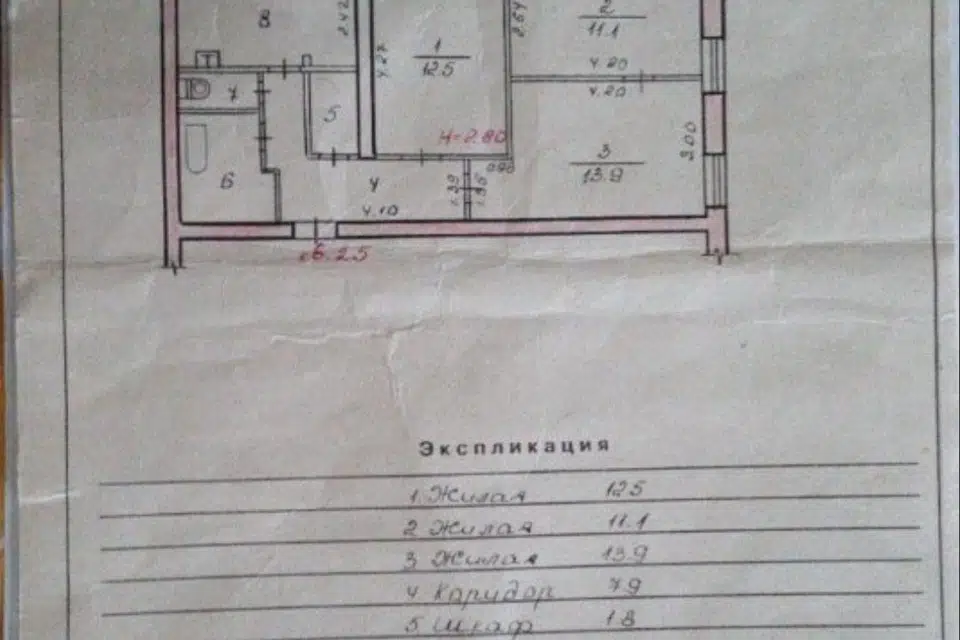 8
2.42
4.27
1
12.5
2.64
2
11.1
4.20
4.20
7
5
H=2.80
3
13.9
3.00
0.90
6
4
4.10
1.39
1.35
кв. 25
Экспликация
1 Жилая 12.5
2 Жилая 11.1
3 Жилая 13.9
4 Каридор 7.9
5 Шкаф 1.8